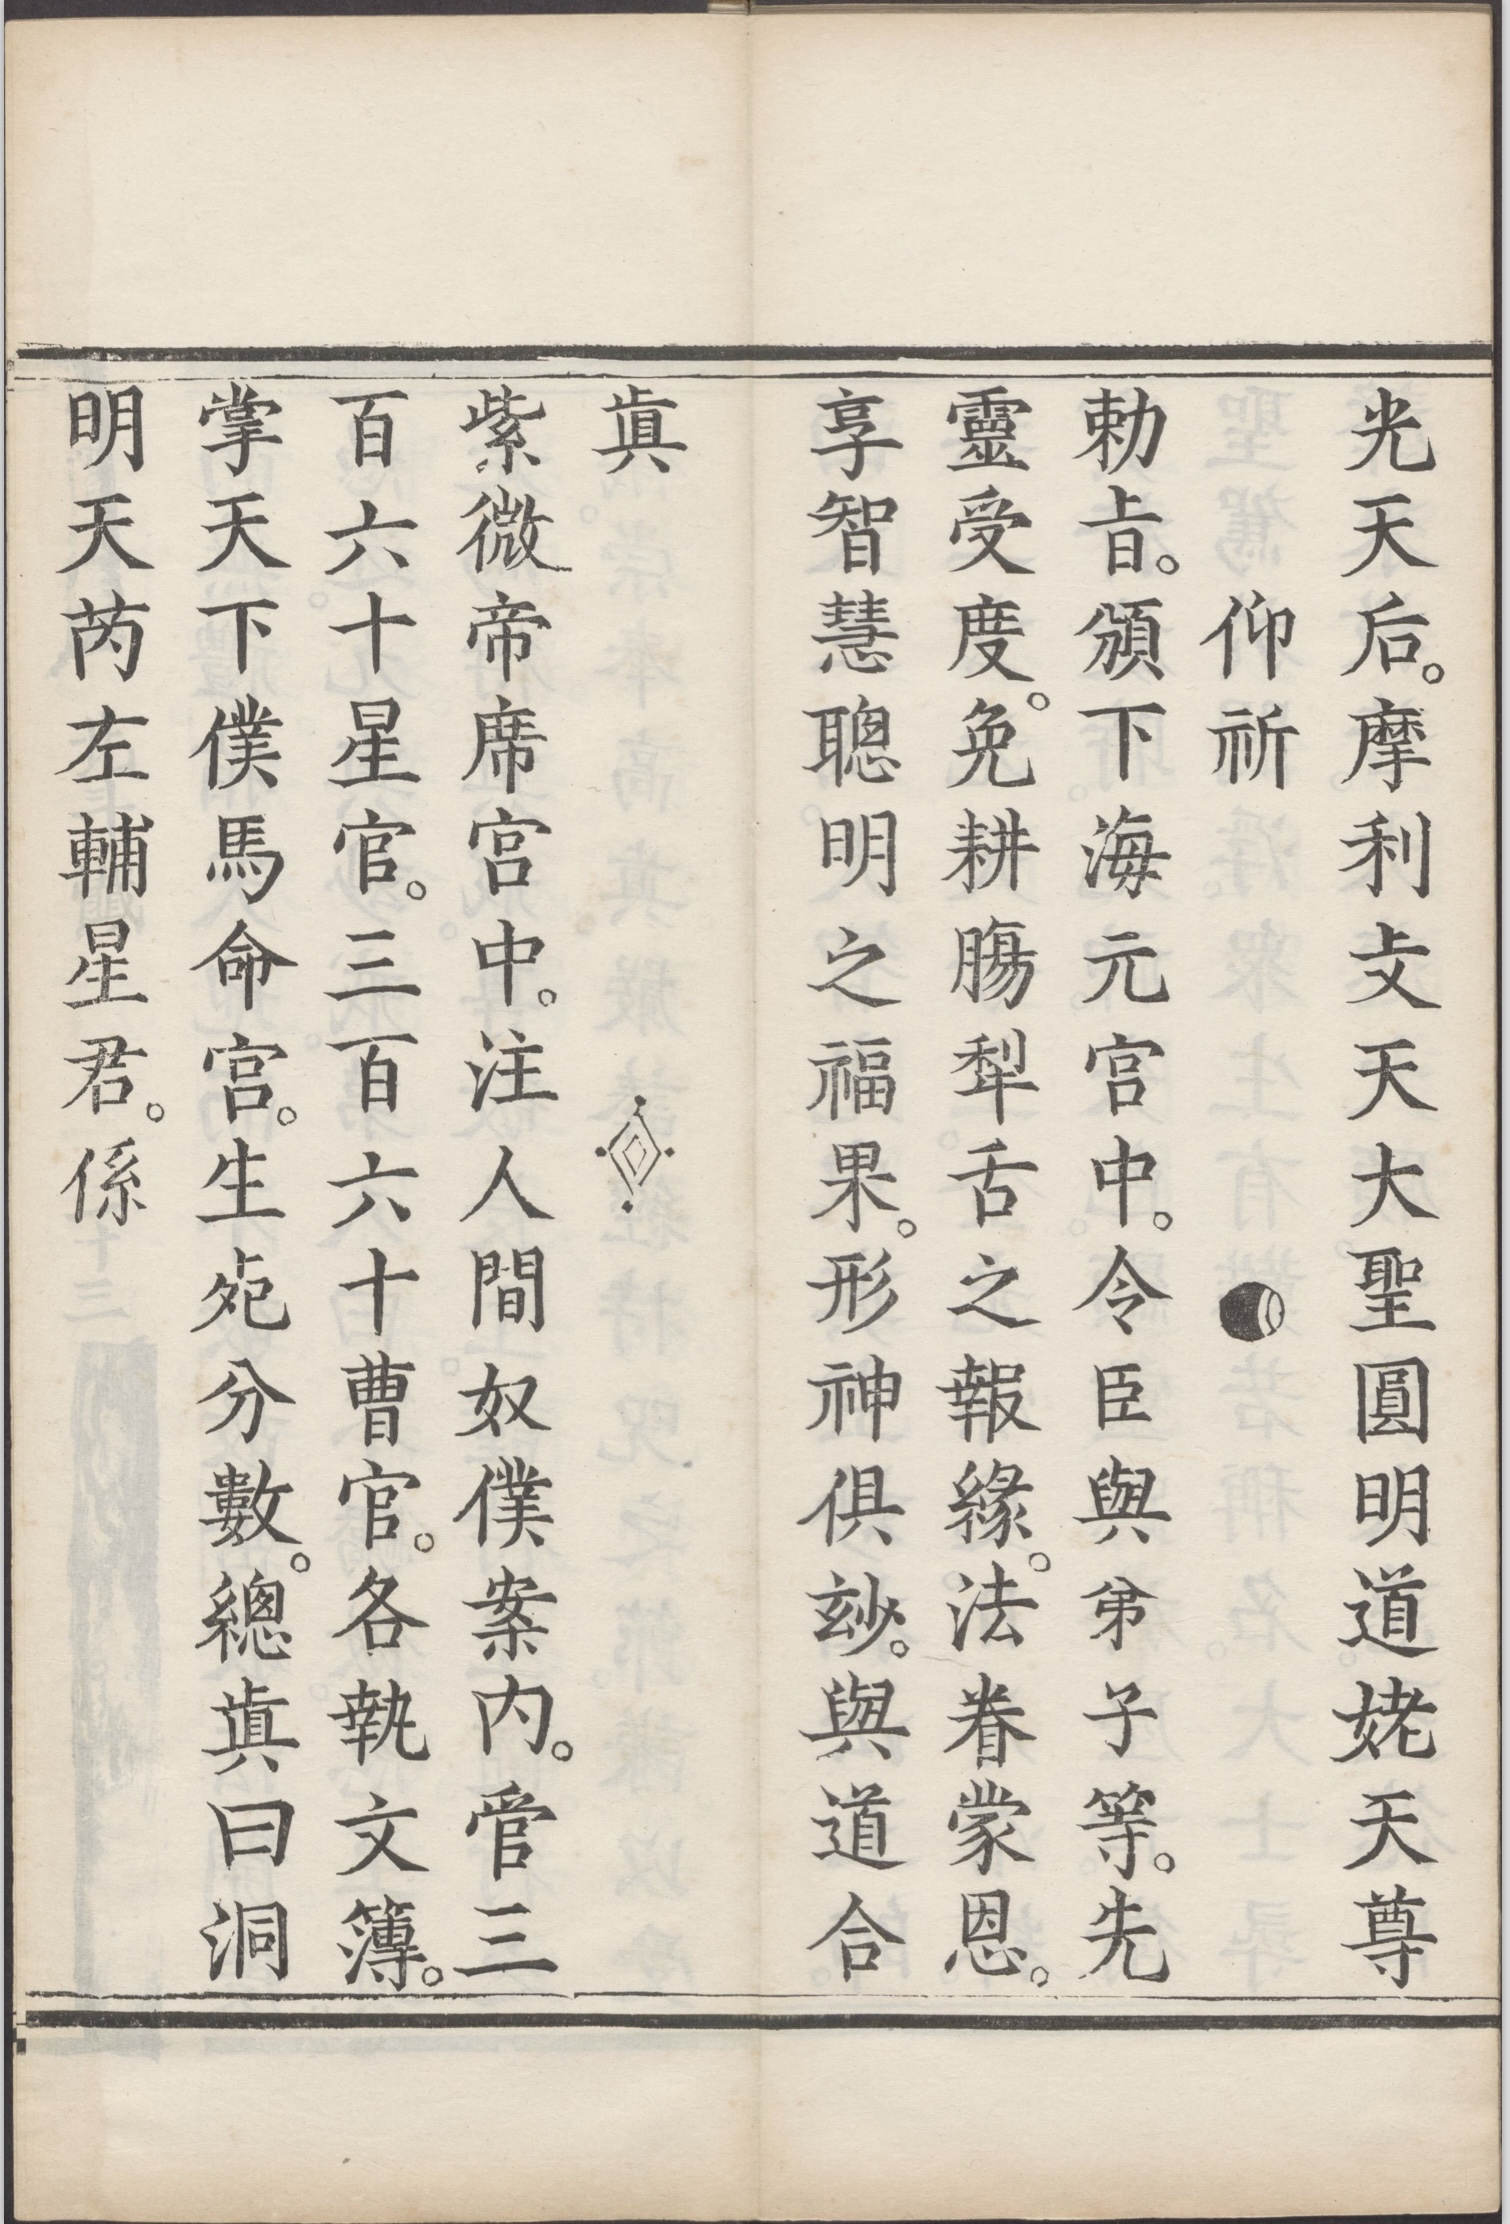 光天后。摩利攴天大聖圓明道姥天尊
仰祈
勅旨。頒下海元宫中。令臣與弟子等。先
靈受度。免耕腸犁舌之報緣。法眷蒙恩。
享智慧聰明之福果。形神俱玅。與道合
眞
紫微帝席宫中。注人間奴僕案内。管三
百六十星官。三百六十曹官。各執文簿。
掌天下僕馬命宫。生死分數。總眞曰洞
明天芮左輔星君。係